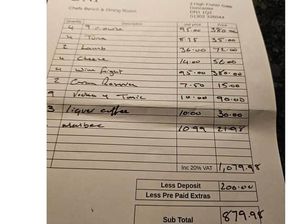 Chefs Bench & Dining Room
2 High Fisher Gate
Doncaster
DN1 1QZ
01302
Quantity Description Unit price Total
4 9 course 95.00 380.00
4 Tuna 8.75 35.00
2 Lamb 36.00 72.00
4 Cheese 14.00 56.00
4 Wine flight 95.00 380.00
2 7.50 15.00
9 Vodka & Tonic 10.00 90.00
3 Liquer coffee 10.00 30.00
Malbec 10.99 21.98
Inc 20% VAT 1,079.98
Less Deposit 200.00
Less Pre Paid Extras
Sub Total 879.98